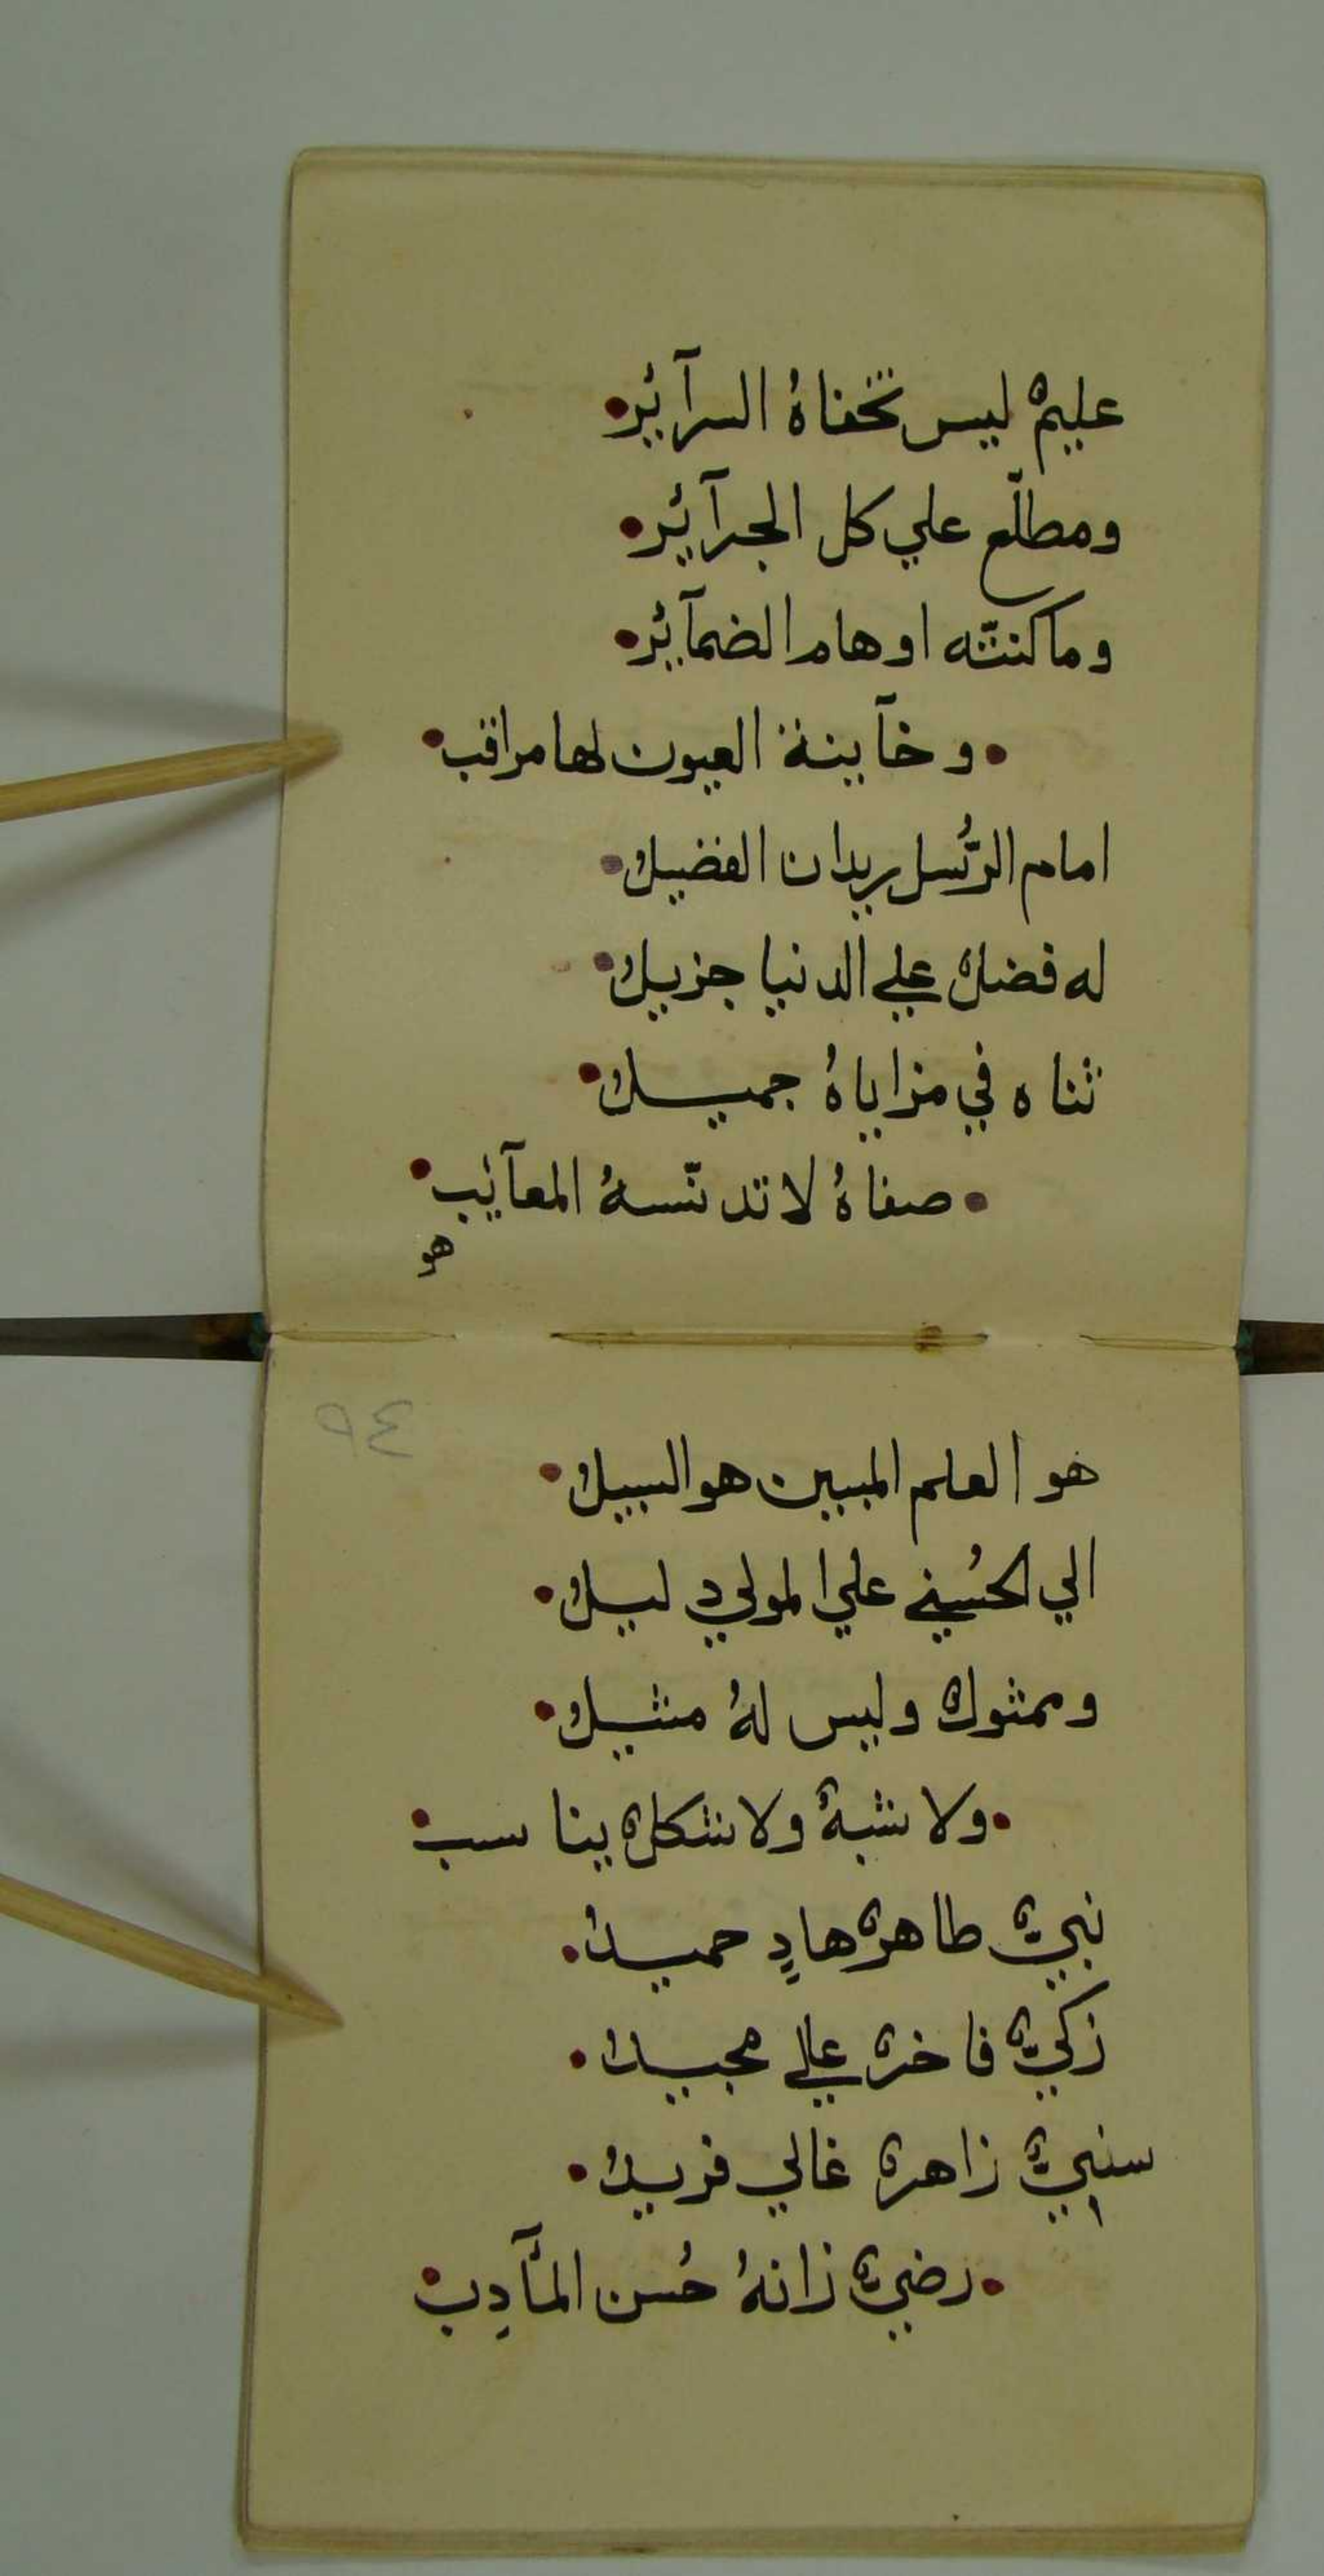 عليمٌ ليس تخفاهُ السرآئر
ومطلّع علي كل الجرآئر
وما كنتّه اوهام الضمآئر
وخآينة العيون لها مراقب
امام الرُّسل ريدان الفضيل
له فضلٌ علي الدنيا جزيل
ثناه في مزاياهُ جميل
صفاهُ لا تدنّسهُ المعآئب
هو
٩٤
هو العلم المبين هو السبيل
الي الحُسني علي المولي دليل
وممثولٌ وليس لهُ مثيل
ولا شبهٌ ولا شكلٌ يناسب
نبيٌ طاهرٌ هادٍ حميد
زكيٌ فاخرٌ عالي مجيد
سنيٌ زاهرٌ غالي فريد
رضيٌ زانهُ حُسن المأٓدِب